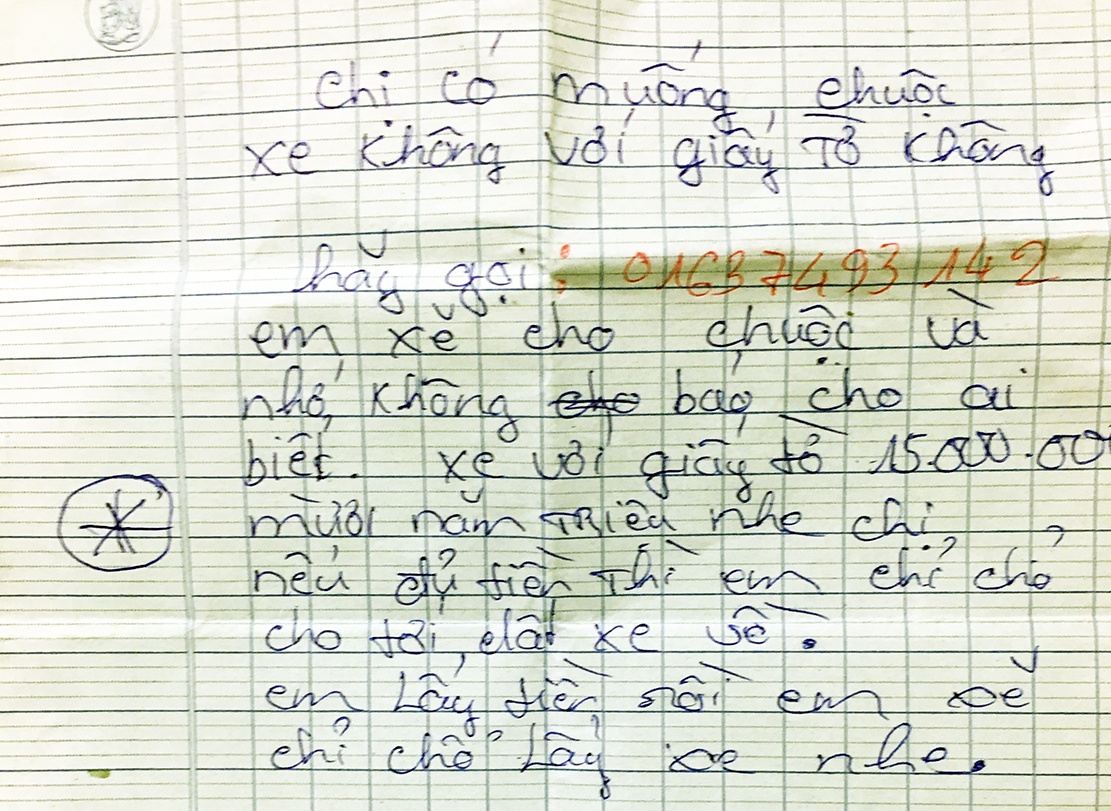 chi có muống chuộc
xe không với giấy Tờ không
hãy gọi: 01637493142
em xẽ cho chuộc và
nhớ không cho báo cho ai
biết. xe với giấy tờ 15.000.00
mười năm Triệu nhe chi
nếu đủ tiền Thì em chỉ chỏ
cho tới, dắt xe về.
em Lấy tiền rồi em xẽ
chỉ chỗ Lấy xe nhe.